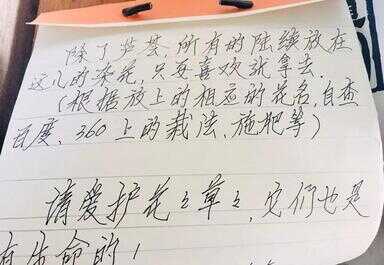 除了芦荟,所有的陆续放在
这儿的盆花,只要喜欢就拿去.
(根据放上的相应的花名,自查
百度、360上的栽法、施肥等)
请爱护花之草之,它们也是
有生命的!